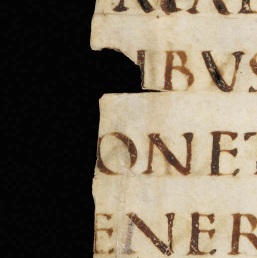 IBVS
ONET
ENER